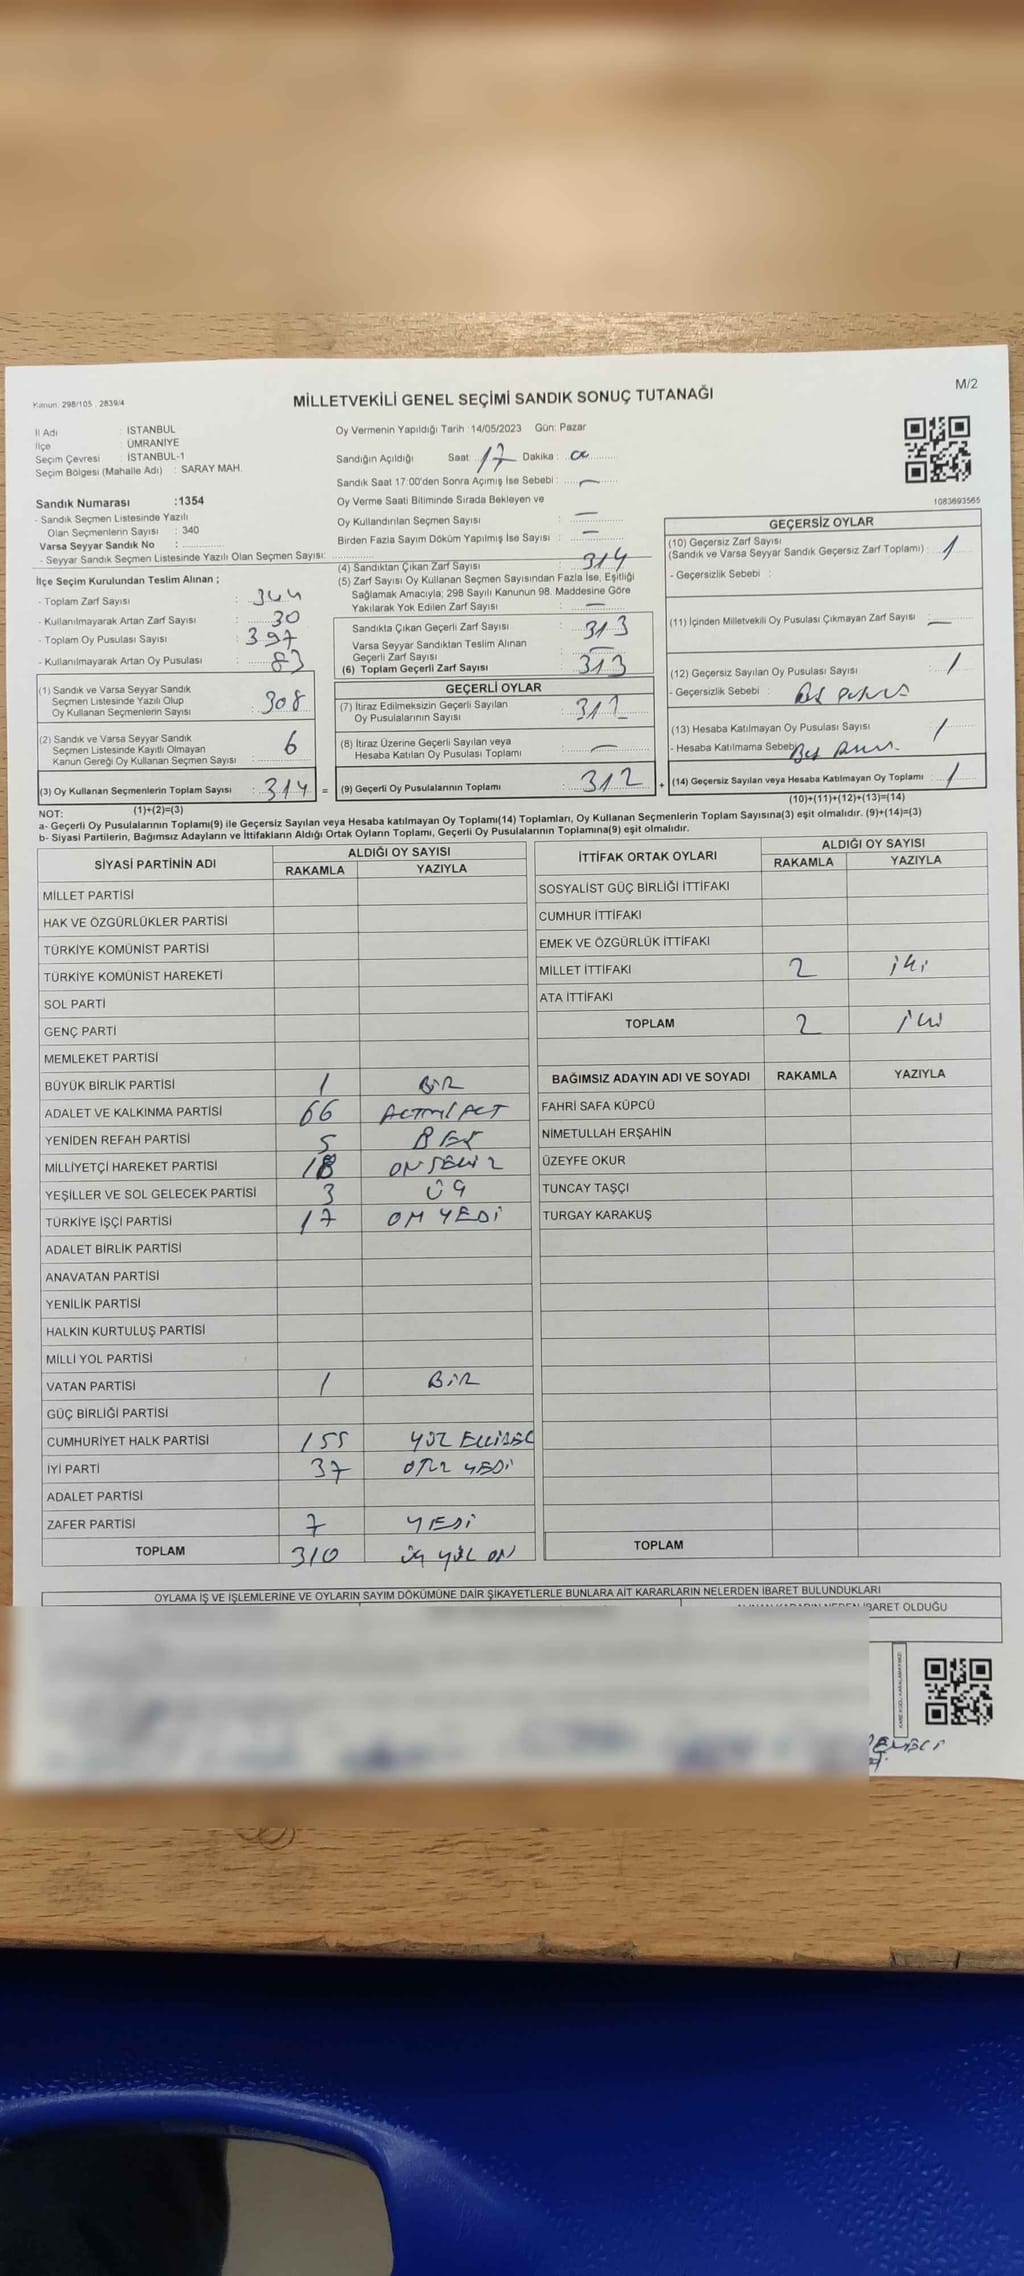 M/2
Kanun: 298/105 , 2839/4
MİLLETVEKİLİ GENEL SEÇİMİ SANDIK SONUÇ TUTANAĞI
İl Adı : İSTANBUL
İlçe : ÜMRANİYE
Seçim Çevresi : İSTANBUL-1
Seçim Bölgesi (Mahalle Adı) : SARAY MAH.
Sandık Numarası :1354
- Sandık Seçmen Listesinde Yazılı
Olan Seçmenlerin Sayısı : 340
Varsa Seyyar Sandık No :
- Seyyar Sandık Seçmen Listesinde Yazılı Olan Seçmen Sayısı:
İlçe Seçim Kurulundan Teslim Alınan ;
- Toplam Zarf Sayısı : 344
- Kullanılmayarak Artan Zarf Sayısı : 30
- Toplam Oy Pusulası Sayısı : 397
- Kullanılmayarak Artan Oy Pusulası : 83
(1) Sandık ve Varsa Seyyar Sandık
Seçmen Listesinde Yazılı Olup
Oy Kullanan Seçmenlerin Sayısı : 308
(2) Sandık ve Varsa Seyyar Sandık
Seçmen Listesinde Kayıtlı Olmayan
Kanun Gereği Oy Kullanan Seçmen Sayısı : 6
(3) Oy Kullanan Seçmenlerin Toplam Sayısı : 314 =
(1)+(2)=(3)
Oy Vermenin Yapıldığı Tarih :14/05/2023 Gün: Pazar
Sandığın Açıldığı Saat: 17 Dakika :
Sandık Saat 17:00'den Sonra Açımış İse Sebebi : —
Oy Verme Saati Bitiminde Sırada Bekleyen ve
Oy Kullandırılan Seçmen Sayısı : —
Birden Fazla Sayım Döküm Yapılmış İse Sayısı : —
(4) Sandıktan Çıkan Zarf Sayısı : 314
(5) Zarf Sayısı Oy Kullanan Seçmen Sayısından Fazla İse, Eşitliği
Sağlamak Amacıyla; 298 Sayılı Kanunun 98. Maddesine Göre
Yakılarak Yok Edilen Zarf Sayısı : —
Sandıkta Çıkan Geçerli Zarf Sayısı : 313
Varsa Seyyar Sandıktan Teslim Alınan
Geçerli Zarf Sayısı : —
(6) Toplam Geçerli Zarf Sayısı : 313
GEÇERLİ OYLAR
(7) İtiraz Edilmeksizin Geçerli Sayılan
Oy Pusulalarının Sayısı :
(8) İtiraz Üzerine Geçerli Sayılan veya
Hesaba Katılan Oy Pusulası Toplamı : —
(9) Geçerli Oy Pusulalarının Toplamı : 312 +
1083693565
GEÇERSİZ OYLAR
(10) Geçersiz Zarf Sayısı
(Sandık ve Varsa Seyyar Sandık Geçersiz Zarf Toplamı) : 1
- Geçersizlik Sebebi :
(11) İçinden Milletvekili Oy Pusulası Çıkmayan Zarf Sayısı : —
(12) Geçersiz Sayılan Oy Pusulası Sayısı : 1
- Geçersizlik Sebebi :
(13) Hesaba Katılmayan Oy Pusulası Sayısı : 1
- Hesaba Katılmama Sebebi:
(14) Geçersiz Sayılan veya Hesaba Katılmayan Oy Toplamı : 1
(10)+(11)+(12)+(13)=(14)
NOT:
a- Geçerli Oy Pusulalarının Toplamı(9) ile Geçersiz Sayılan veya Hesaba katılmayan Oy Toplamı(14) Toplamları, Oy Kullanan Seçmenlerin Toplam Sayısına(3) eşit olmalıdır. (9)+(14)=(3)
b- Siyasi Partilerin, Bağımsız Adayların ve İttifakların Aldığı Ortak Oyların Toplamı, Geçerli Oy Pusulalarının Toplamına(9) eşit olmalıdır.
SİYASİ PARTİNİN ADI ALDIĞI OY SAYISI
RAKAMLA YAZIYLA
MİLLET PARTİSİ
HAK VE ÖZGÜRLÜKLER PARTİSİ
TÜRKİYE KOMÜNİST PARTİSİ
TÜRKİYE KOMÜNİST HAREKETİ
SOL PARTİ
GENÇ PARTİ
MEMLEKET PARTİSİ
BÜYÜK BİRLİK PARTİSİ 1 BİR
ADALET VE KALKINMA PARTİSİ 66
YENİDEN REFAH PARTİSİ 5 BEŞ
MİLLİYETÇİ HAREKET PARTİSİ 18 ON SEKİZ
YEŞİLLER VE SOL GELECEK PARTİSİ 3 ÜÇ
TÜRKİYE İŞÇİ PARTİSİ 17 ON YEDİ
ADALET BİRLİK PARTİSİ
ANAVATAN PARTİSİ
YENİLİK PARTİSİ
HALKIN KURTULUŞ PARTİSİ
MİLLİ YOL PARTİSİ
VATAN PARTİSİ 1 BİR
GÜÇ BİRLİĞİ PARTİSİ
CUMHURİYET HALK PARTİSİ 155 YÜZ
İYİ PARTİ 37 OTUZ YEDİ
ADALET PARTİSİ
ZAFER PARTİSİ 7 YEDİ
TOPLAM 310 ÜÇ YÜZ ON
İTTİFAK ORTAK OYLARI ALDIĞI OY SAYISI
RAKAMLA YAZIYLA
SOSYALİST GÜÇ BİRLİĞİ İTTİFAKI
CUMHUR İTTİFAKI
EMEK VE ÖZGÜRLÜK İTTİFAKI
MİLLET İTTİFAKI 2 iki
ATA İTTİFAKI
TOPLAM 2 iki
BAĞIMSIZ ADAYIN ADI VE SOYADI RAKAMLA YAZIYLA
FAHRİ SAFA KÜPCÜ
NİMETULLAH ERŞAHİN
ÜZEYFE OKUR
TUNCAY TAŞÇI
TURGAY KARAKUŞ
TOPLAM
OYLAMA İŞ VE İŞLEMLERİNE VE OYLARIN SAYIM DÖKÜMÜNE DAİR ŞİKAYETLERLE BUNLARA AİT KARARLARIN NELERDEN İBARET BULUNDUKLARI
İBARET OLDUĞU